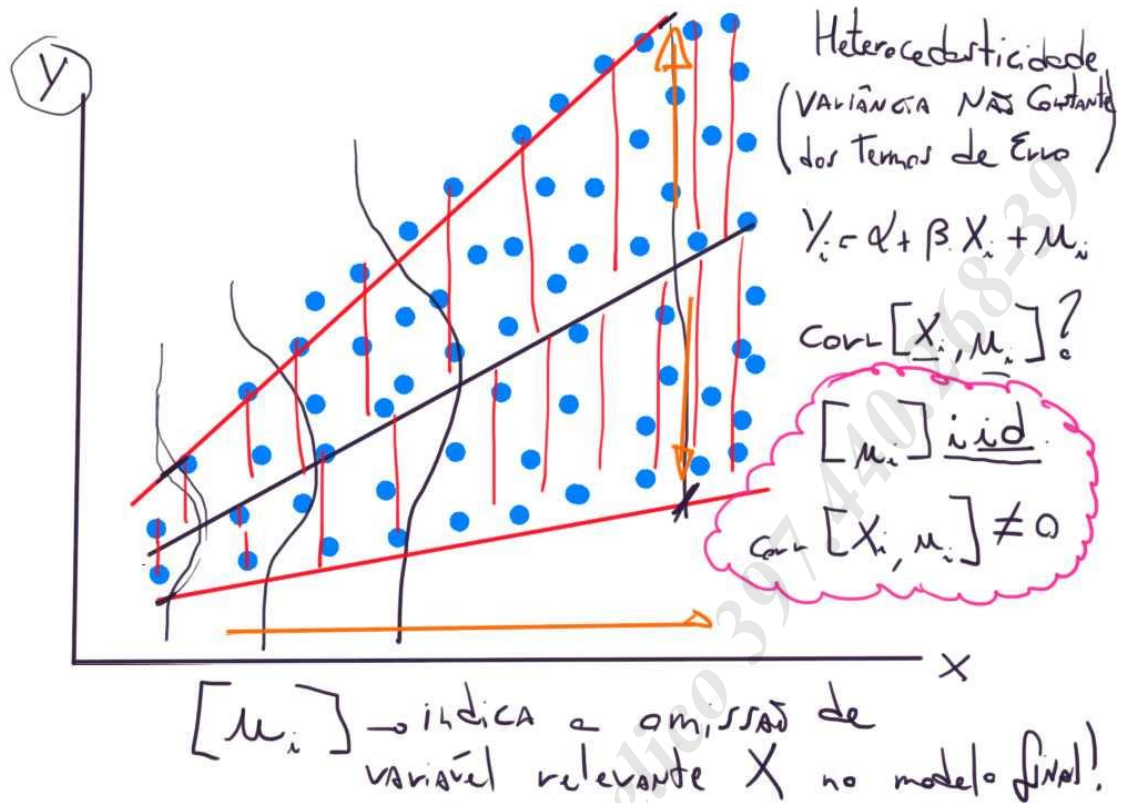 Y
Heterocedasticidade
(VARIÂNCIA NÃO Constante
dos Termos de Erro)
Yi = α + β.Xi + μi
Corr [Xi, μi]?
[μi] iid
Corr [Xi, μi] ≠ 0
X
[μi] → indica a omissão de
variável relevante X no modelo final!
397.440.268-39